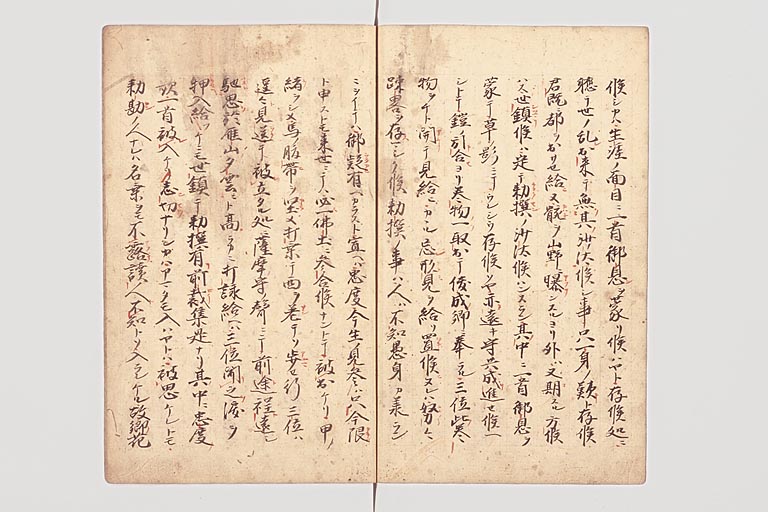 候シカハ生涯ノ面目ニ一首御恩ヲ蒙リ候ハヤト存候処ニ
聴テ世ノ乱出来テ無其沙汰候シ事只一身ノ歎ト存候
君既都ヲ出サセ給又骸ヲ山野ニ曝ンスルヨリ外ハ又期スル方候
ハス世鎮候ハ定テ勅撰ノ沙汰候ハンスラン其中ニ一首御恩ヲ
蒙テ草ノ影ニテモウレシト存候ハヽヤ亦遠キ守共成進セ候ハン
トテ鎧ノ引合ヨリ巻物一取出テ俊成卿ニ奉ル三位此巻
物ヲチト開テ見給テカヽル忘形見ヲ給リ置候ヌレハ努々
疎畧ヲ存マシク候勅撰ノ事ハ人ハ不知愚身カ
御疑有ヘカラスト宣ヘハ忠度今生ノ見参ハ只今限
ト申ストモ来世ニテハ必一佛土ニ参合候ナントテ被出ケリ甲ノ
緒ヲシメ馬ノ腹帯ヲ堅メ打乗テ西ヲ差テソ歩セ行三位ハ
遥々見送テ被立タル処ニ薩摩守聲ニテ前途程遠シ
馳思於雁山夕雲ニト高ラカニ打詠給ヘハ三位聞之涙ヲ
押入給世鎮テ勅撰有前載集是ナリ其中ニ忠度
歌一首被入ケリ志切ナリシカハアマタモ入ハヤトハ被思ケレトモ
勅勘ノ人ナレハ名字ヲハ不露讀人不知トソ入ラレケル故郷花